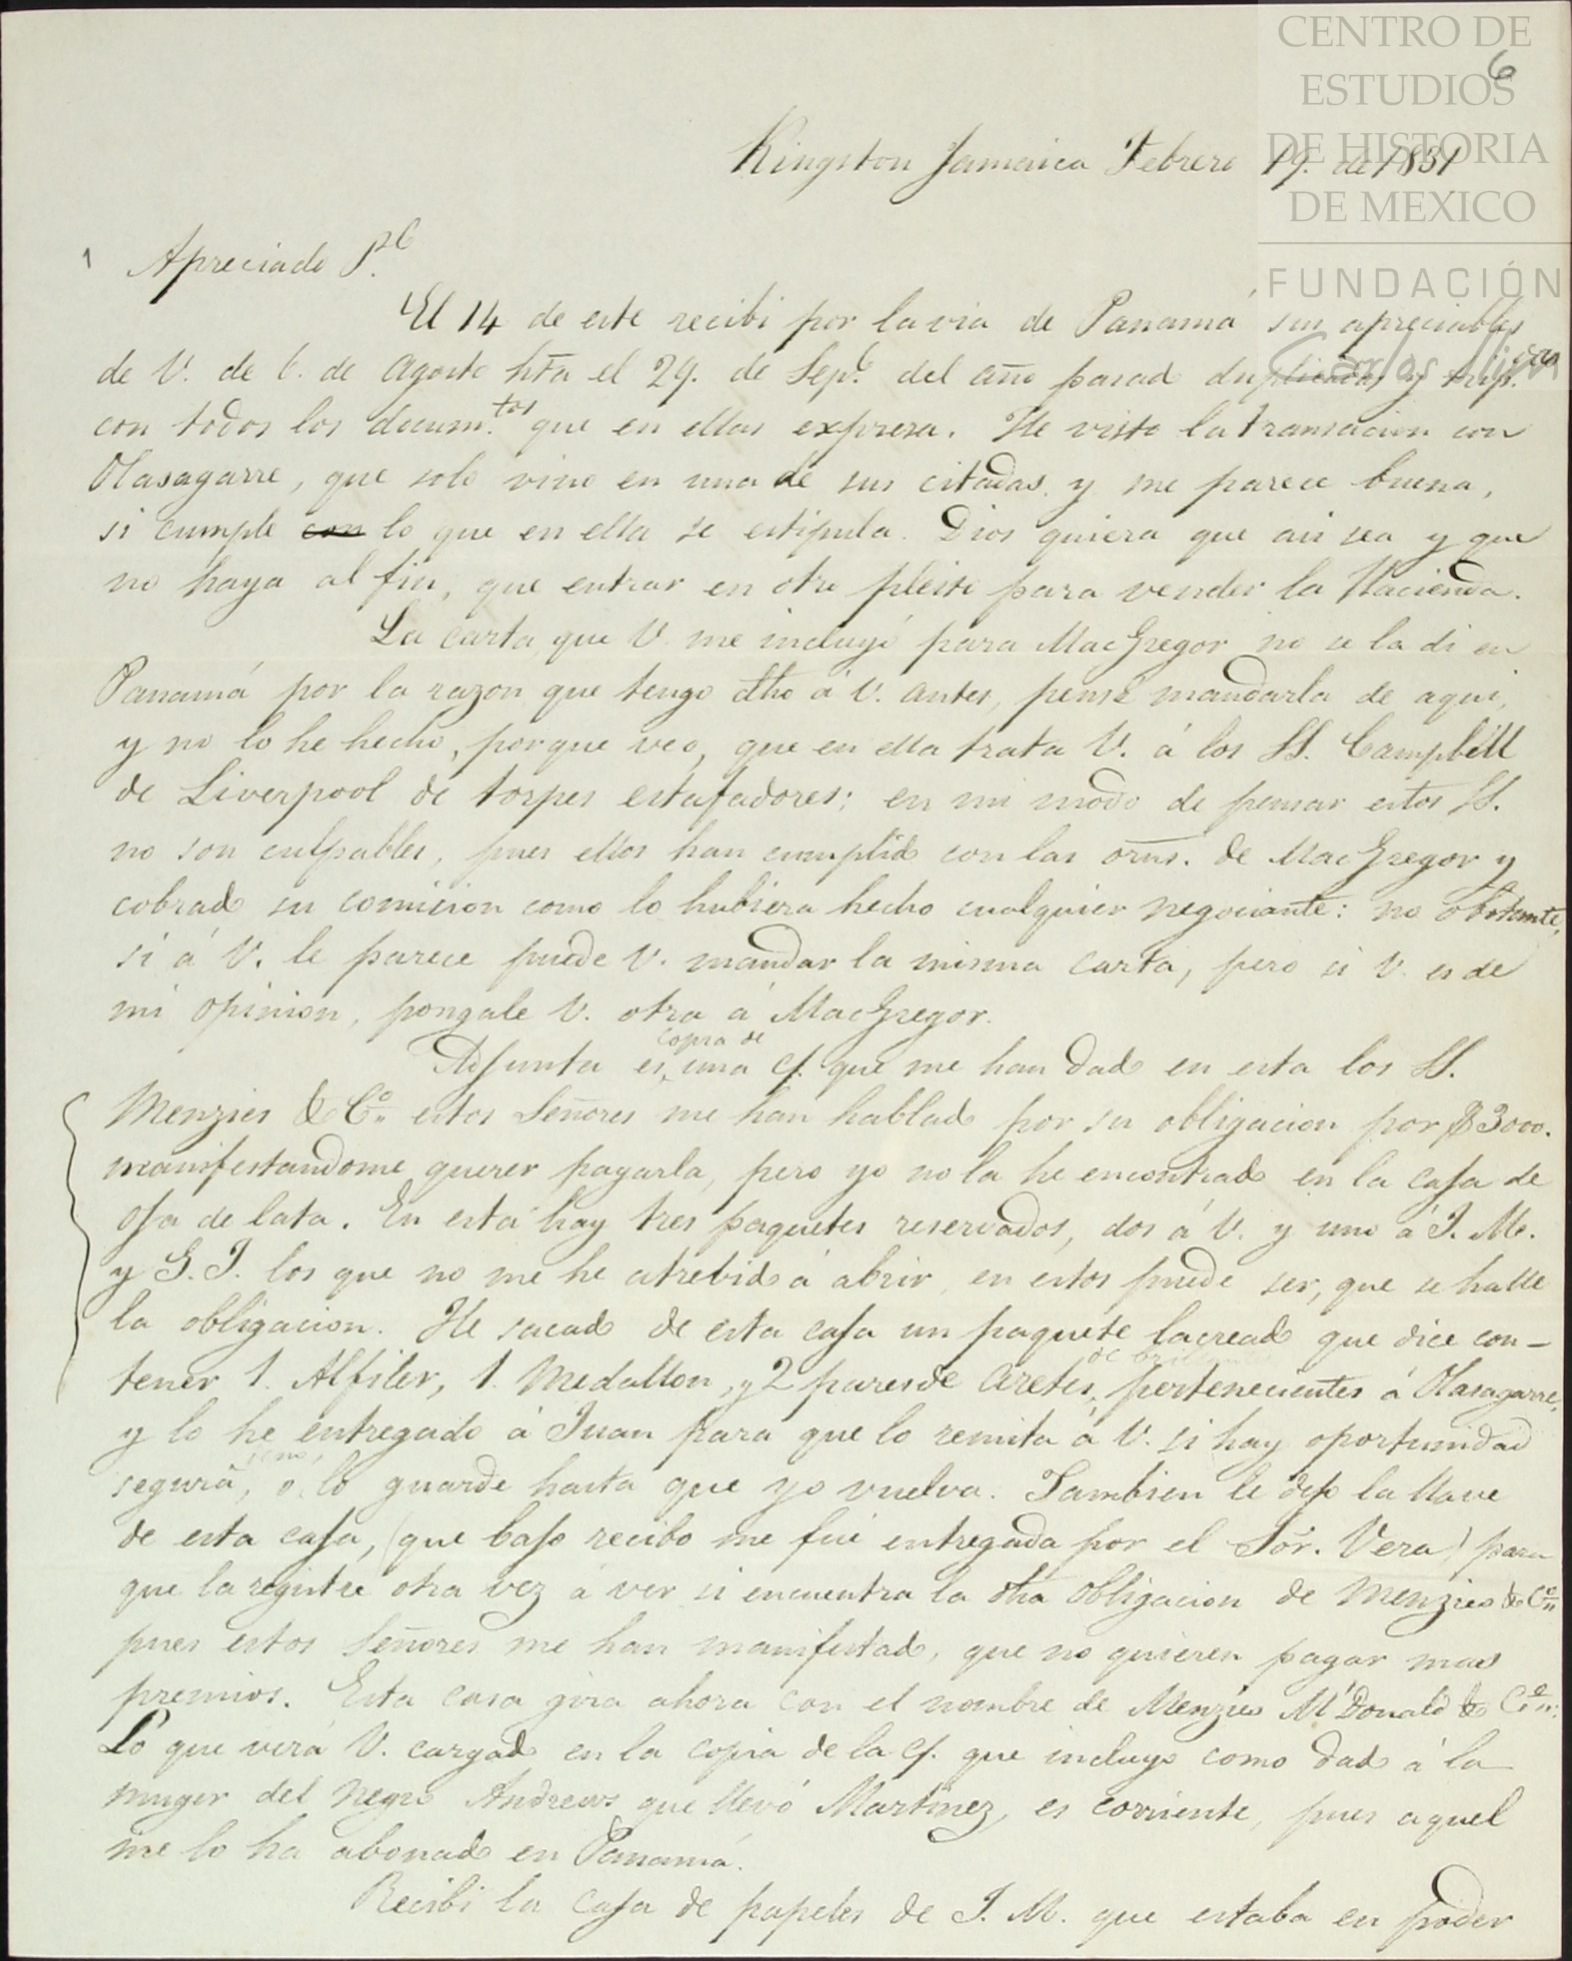 CENTRO DE
ESTUDIOS
DE HISTORIA
DE MEXICO
FUNDACIÓN
Carlos Slim
6
Kingston Jamaica Febrero 19. de 1831
Apreciado P.
El 14 de este recibi por la via de Panamá sus apreciables
de V. de 6. de Agosto hta el 29. de Sepe. del año pasado duplicadas y trip.cas
con todos los docum.tos que en ellas expresa. He visto la transacion con
Olasagarre, que solo vino en una de sus citadas y me parece buena,
si cumple con lo que en ella se estipula. Dios quiera que asi sea y que
no haya al fin, que entrar en otro pleito para vender la Hacienda.
La carta que V. me incluyó para MacGregor no se la di en
Panamá por la razon que tengo dho á V. antes, pensé mandarla de aqui,
y no lo he hecho, porque veo, que en ella trata V. á los SS. Campbell
de Liverpool de torpes estafadores: en mi modo de pensar estos SS.
no son culpables, pues ellos han cumplido con las orns. de MacGregor y
cobrado su comision como lo hubiera hecho cualquier negociante: no obstante,
si á V. le parece puede V. mandar la misma carta, pero si V. es de
mi opinion, pongale V. otra á MacGregor.
copia de
Adjunta es una c/. que me han dado en esta los SS.
Menzies & Co. estos Señores me han hablado por su obligacion por $3000.
manifestandome querer pagarla, pero yo no la he encontrado en la caja de
oja de lata. En esta hay tres paquetes reservados, dos á V. y uno á J. M.
y G. J. los que no me he atrebido á abrir, en estos puede ser, que se halle
la obligacion. He sacado de esta caja un paquete lacreado que dice con-
de brillantes
tener 1. Alfiler, 1. Medallon, y 2 pares de Aretes, pertenecientes á Olasagarre,
y lo he entregado á Juan para que lo remita á V. si hay oportunidad
segura, o sino, lo guarde hasta que yo vuelva. Tambien le dejo la llave
de esta caja, (que bajo recibo me fué entregada por el Sor. Vera) para
que la registre otra vez á ver si encuentra la dha obligacion de Menzies & Co.
pues estos Señores me han manifestado, que no quieren pagar mas
premios. Esta casa gira ahora con el nombre de Menzies McDonald & Co.
Lo que verá V. cargado en la copia de la c/. que incluyo como dado á la
muger del negro Andrews que llevó Martinez, es corriente, pues aquel
me lo ha abonado en Panamá.
Recibi la caja de papeles de J. M. que estaba en poder